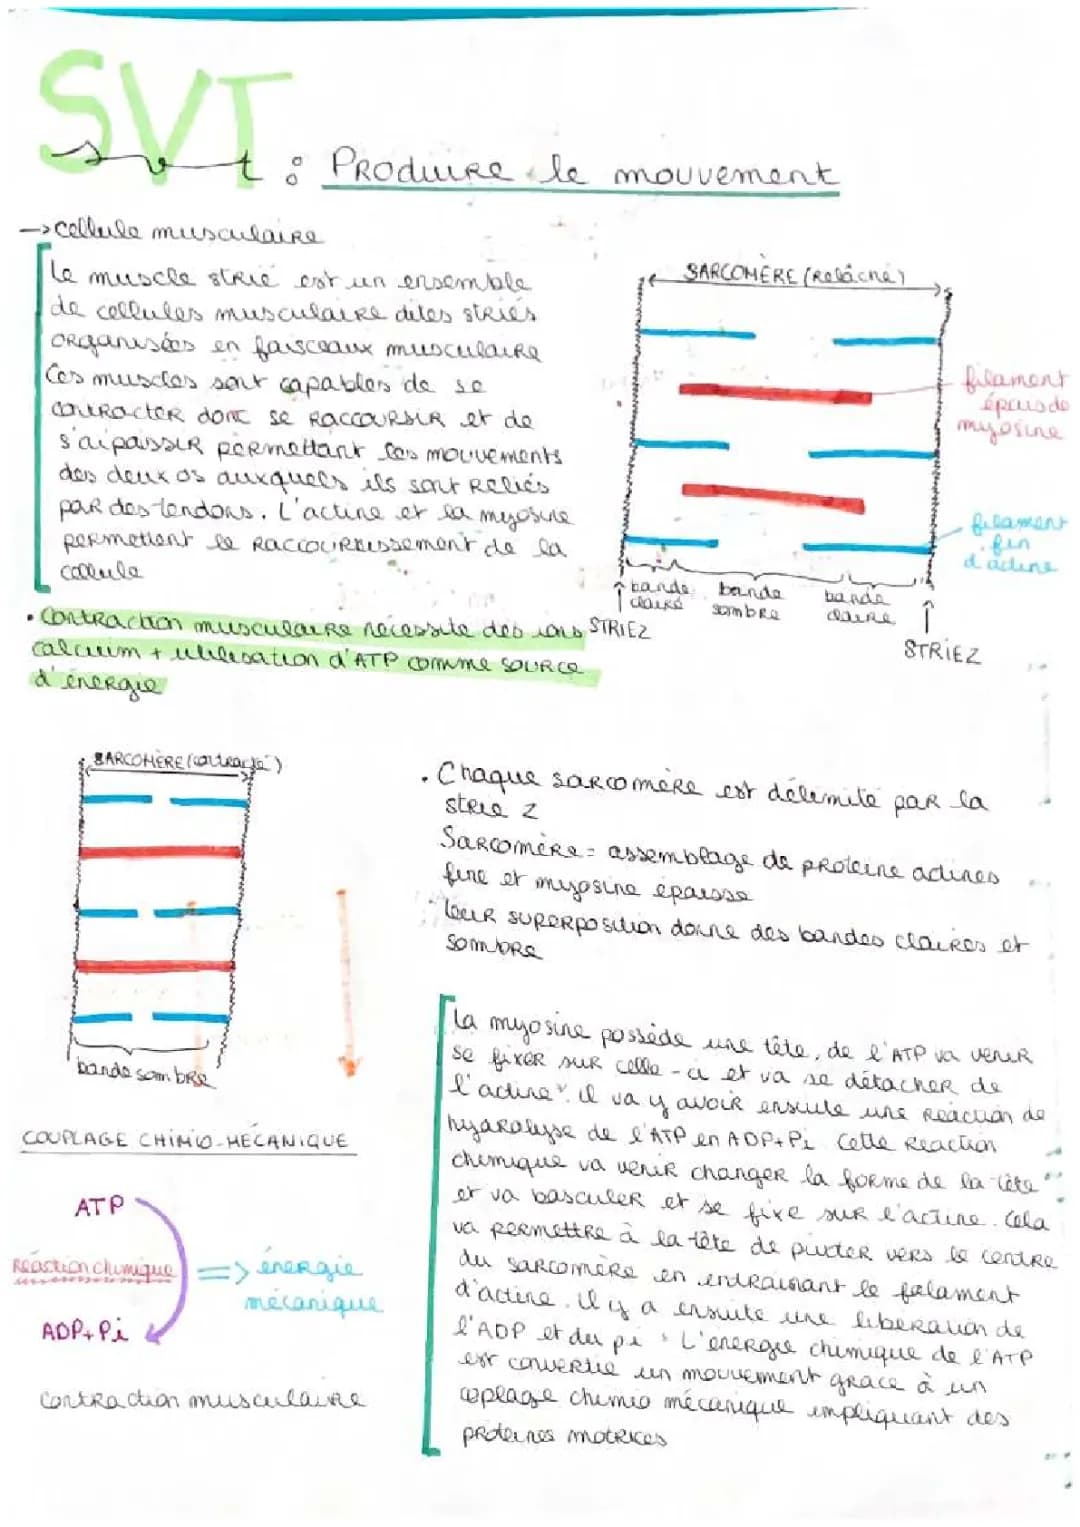 SVT
svt : Produire le mouvement
-> cellule musculaire
Le muscle strié est un ensemble
de cellules musculaire dites striés
organisées en faisceaux musculaire
Ces muscles sont capables de se
contracter donc se raccoursir et de
s'aipaissir permettant les mouvements
des deux os auxquels ils sont reliés
par des tendons. L'actine et la myosine
permettent le raccourcissement de la
cellule
• Contraction musculaire nécessite des ions
calcium + utilisation d'ATP comme source
d'énergie
SARCOMÈRE (Relâché)
filament
épais de
myosine
filament
fin
d'actine
bande
claire
bande
sombre
bande
claire
STRIEZ
STRIEZ
SARCOMÈRE (contracté)
bande sombre
• Chaque sarcomère est délimité par la
strie Z
Sarcomère = assemblage de proteine actines
fine et myosine épaisse
leur superposition donne des bandes claires et
sombre
La myosine possède une tête, de l'ATP va venir
se fixer sur celle-ci et va se détacher de
l'actine. il va y avoir ensuite une réaction de
hydrolyse de l'ATP en ADP+Pi. Cette réaction
chimique va venir changer la forme de la tête
et va basculer et se fixe sur l'actine. Cela
va permettre à la tête de pivoter vers le centre
du sarcomère en entrainant le filament
d'actine. il y a ensuite une libération de
l'ADP et du pi. L'énergie chimique de l'ATP
est convertie un mouvement grace à un
coplage chimio mécanique impliquant des
proteines motrices
COUPLAGE CHIMIO-MÉCANIQUE
ATP
Réaction chimique => énergie
mécanique
ADP+Pi
Contraction musculaire